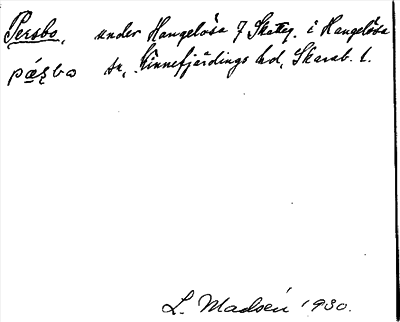 Persbo, under Hangelösa 7 Skatteg. i Hangelösa
pa̱ʂbo sn, Kinnefjärdings hd, Skarab. l.
L. Madsén 1930.